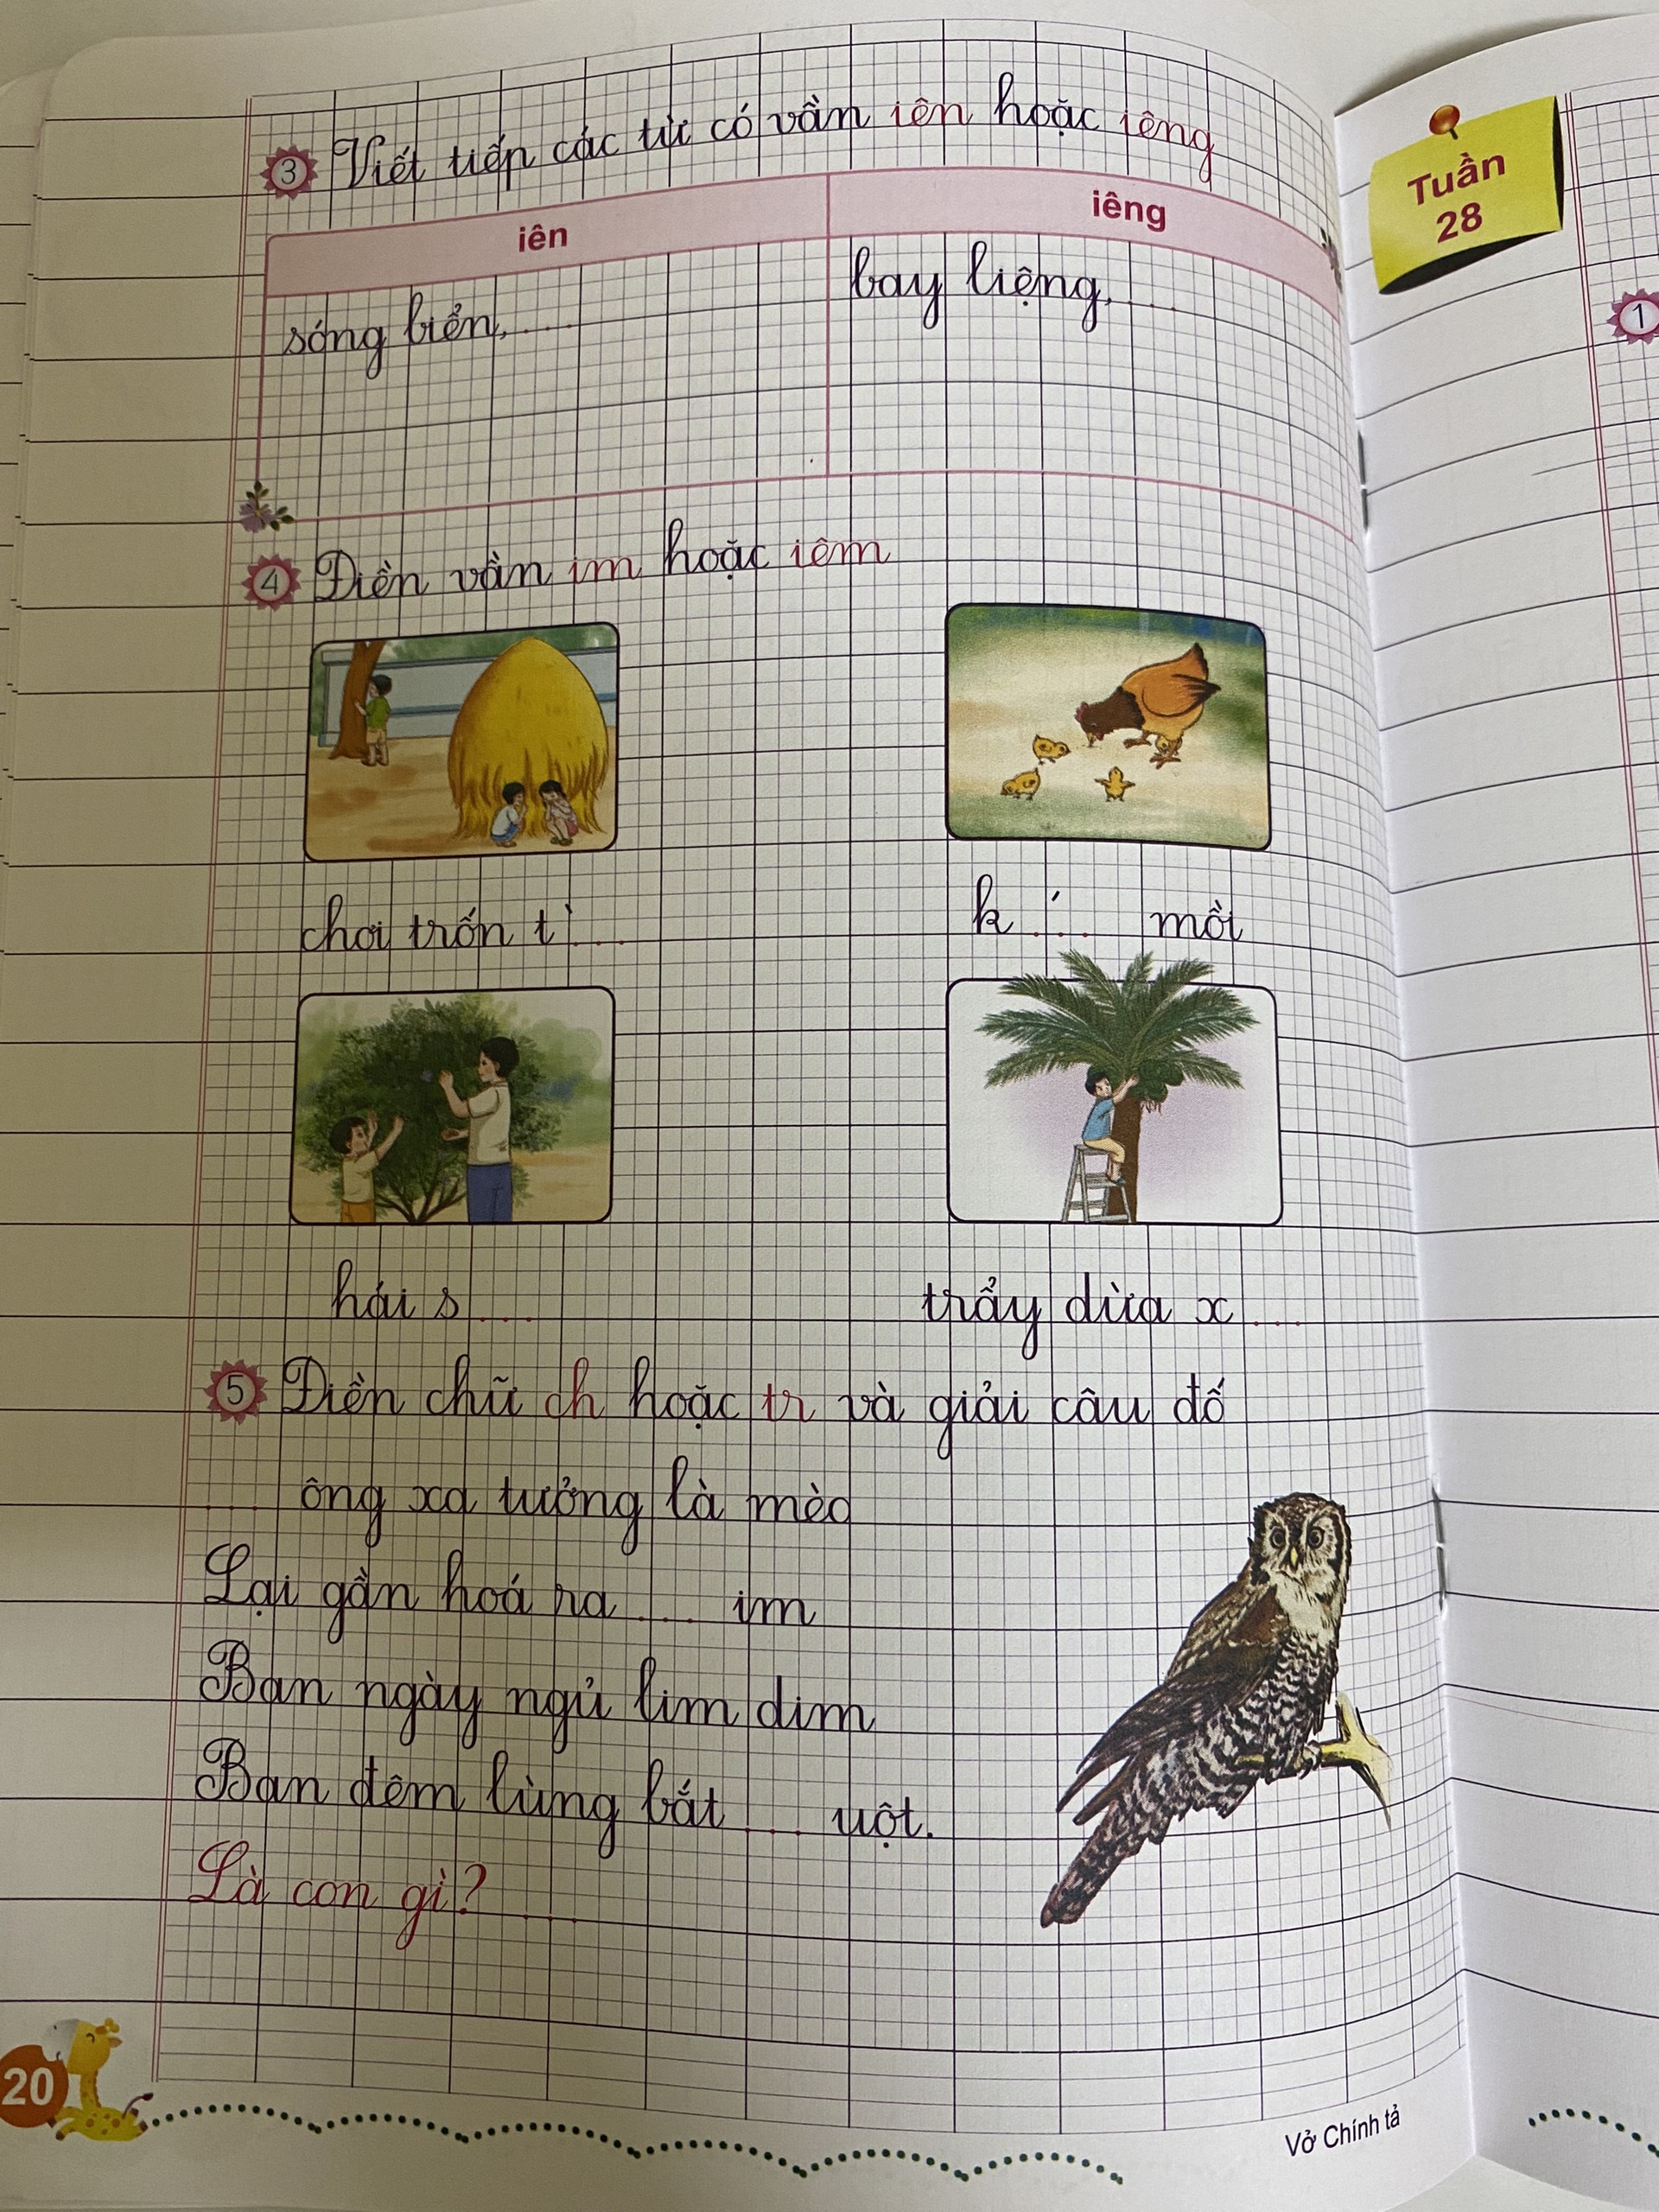 3 Viết tiếp các từ có vần iên hoặc iêng
iên iêng
sóng biển, ... bay liệng, ...
4 Điền vần im hoặc iêm
chơi trốn t ̀... k ́... mồi
hái s... trẩy dừa x...
5 Điền chữ ch hoặc tr và giải câu đố
... ông xa tưởng là mèo
Lại gần hoá ra ... im
Ban ngày ngủ lim dim
Ban đêm lùng bắt ... uột.
Là con gì? ...
20
Vở Chính tả
Tuần
28
1